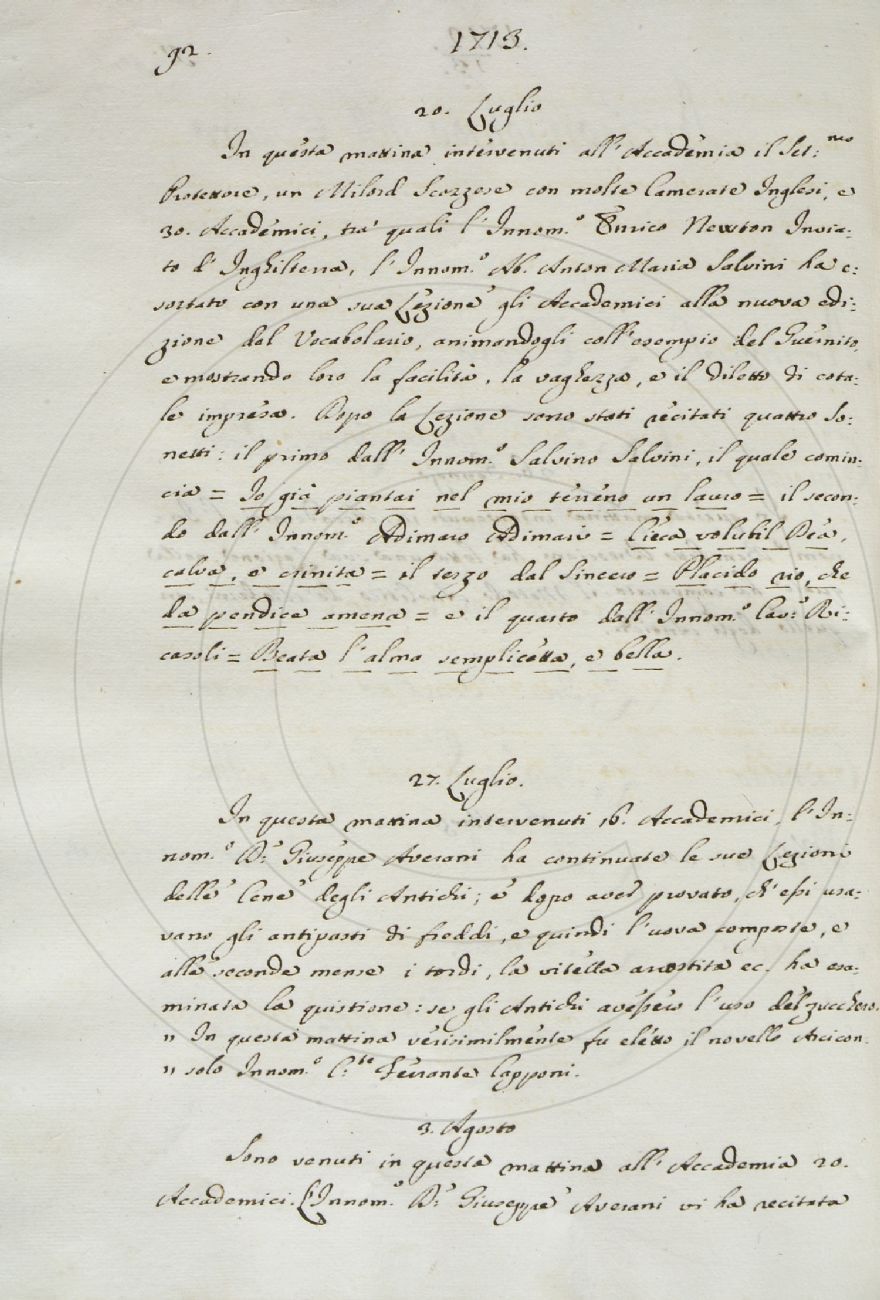 92.
1713.
20. Luglio
In questa mattina intervenuti all'Accademia il Ser:mo
Protettore, un Milord Scozzese con molte Camerate Inglesi, e
30. Accademici, tra' quali l'Innom.o Enrico Newton Invia-
to d'Inghilterra, l'Innom.o Ab. Anton Maria Salvini ha e-
sortato con una sua Lezione gli Accademici alla nuova edi-
zione del Vocabolario, animandogli coll'esempio del Guernito,
e mostrando loro la facilità, la vaghezza, e il diletto di cota-
le impresa. Dopo la Lezione sono stati recitati quattro So-
netti: il primo dall'Innom.o Salvino Salvini, il quale comin-
cia = Io già piantai nel mio terreno un lauro = il secon-
do dall'Innom.o Adimaro Adimari = Cieca volubil Dea,
calva, e crinita = il terzo dal Sincero = Placido rio, che
da pendice amena = e il quarto dall'Innom.o Cav.e Ri-
casoli = Beata l'alma semplicetta, e bella.
27. Luglio.
In questa mattina intervenuti 16. Accademici, l'In-
nom.o D.r Giuseppe Averani ha continuate le sue Lezioni
delle Cene degli Antichi; e dopo aver provato, ch'essi usa-
vano gli antipasti di freddi, e quindi l'uova composte, e
alle seconde mense i tordi, la vitella arrostita ec. ha esa-
minata la quistione: se gli Antichi avessero l'uso del zucchero.
" In questa mattina verisimilmente fu eletto il novello Arcicon-
" solo Innom.o C:te Ferrante Capponi.
3. Agosto
Sono venuti in questa mattina all'Accademia 20.
Accademici. L'Innom.o D.r Giuseppe Averani vi ha recitata